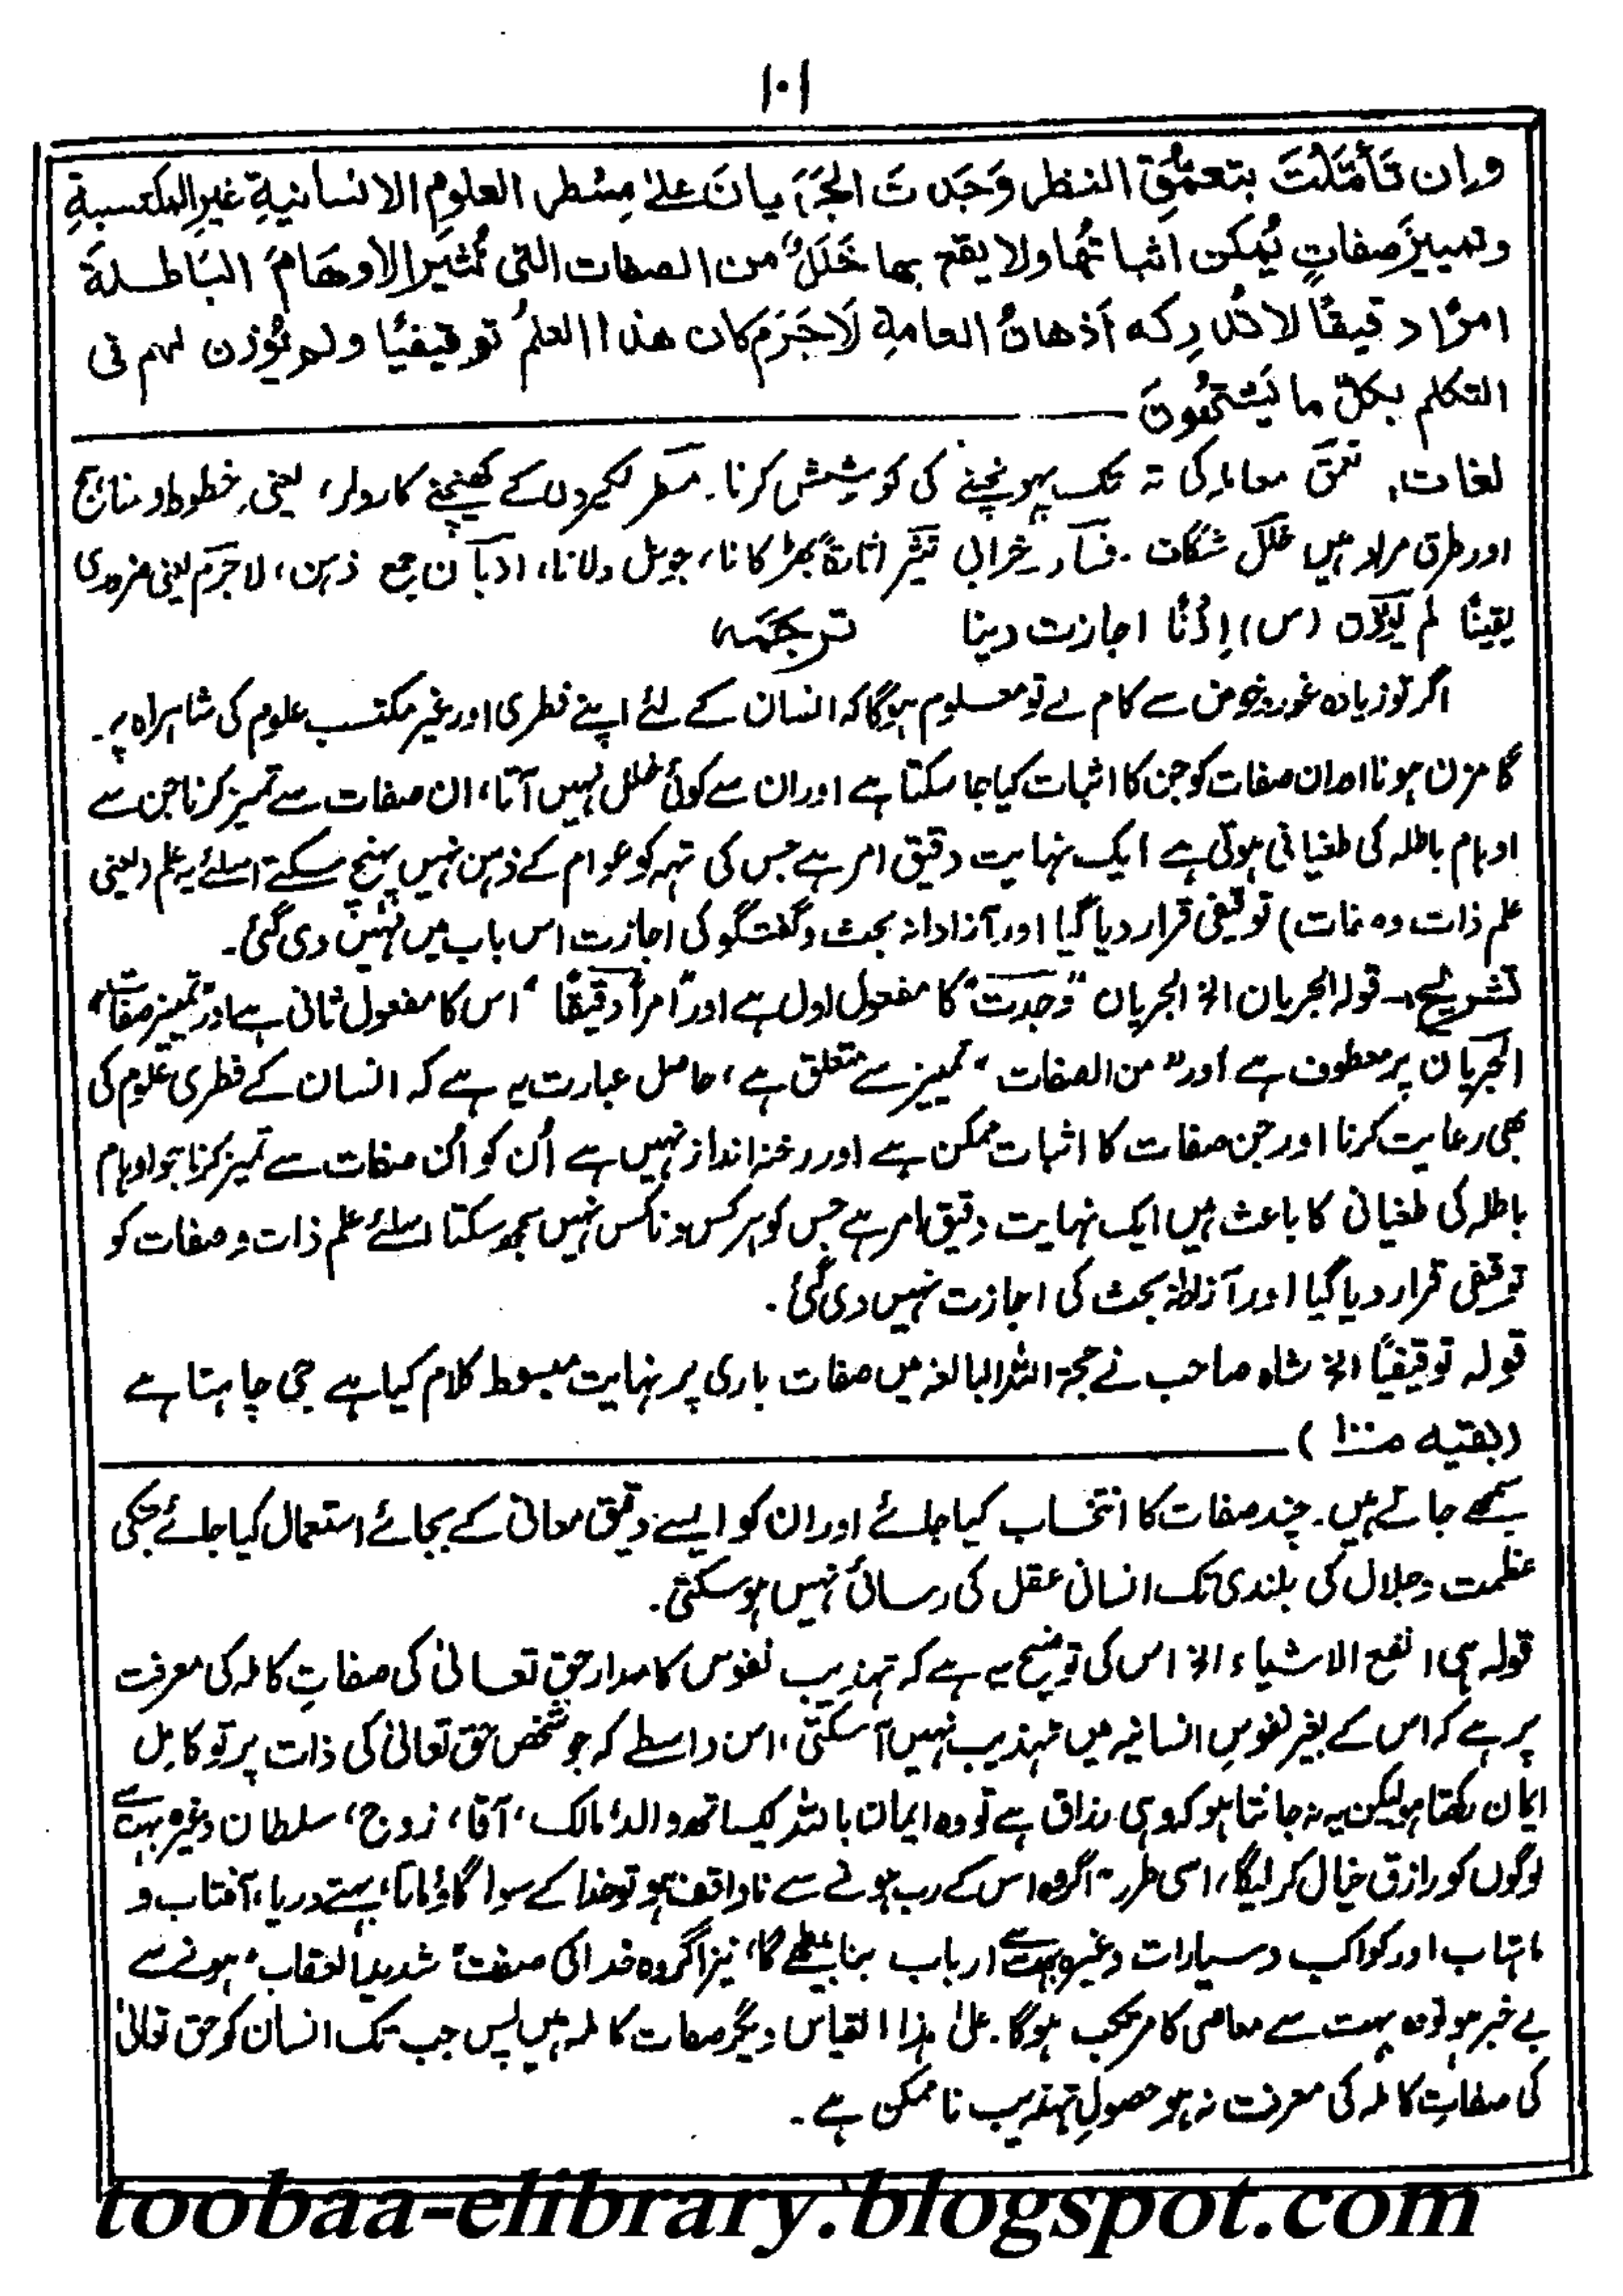 ۱۰۱
وان تَأمَّلْتَ بتعمُّقِ النظر وَجَدتَ الجَرَیانَ علیٰ مِسْطرِ العلومِ الانسانیةِ غیرِ المکتسبةِ
وتمییزَ صفاتٍ یُمکن اثباتُها ولا یقع بها خَلَلٌ من الصفات التی تُثیر الاوهَامَ البَاطلةَ
امرًا دقیقًا لا تُدرِکه أذهانُ العامةِ لَاجَرَمَ کان هذا العلمُ توقیفیًا ولم یُؤذن لهم فی
التکلم بکلّ ما یَشتهُونَ
لغات: تعمق معاملہ کی تہ تک پہونچنے کی کوشش کرنا۔ مسطر لکیروں کے کھینچنے کا رولر، یعنی خطوط و مناہج
اور طرق مراد ہیں خلل شگاف ۔ فساد خرابی تثیر اثارۃً بھڑکانا، جوش دلانا، اذہان جمع ذہن، لاجرم یعنی ضروری
یقینًا لم یؤذن (س) اِذْنًا اجازت دینا ترجمہ
اگر تو زیادہ غور و خوض سے کام لے تو معلوم ہوگا کہ انسان کے لئے اپنے فطری اور غیر مکتسب علوم کی شاہراہ پر۔
گامزن ہونا اور ان صفات کو جن کا اثبات کیا جا سکتا ہے اور ان سے کوئی خلل نہیں آتا، ان صفات سے تمیز کرنا جن سے
اوہام باطلہ کی طغیانی ہوتی ہے ایک نہایت دقیق امر ہے جس کی تہہ کو عوام کے ذہن نہیں پہنچ سکتے اسلئے یہ علم (یعنی
علم ذات وصفات) توقیفی قرار دیا گیا اور آزادانہ بحث و گفتگو کی اجازت اس باب میں نہیں دی گئی۔
تشریح:۔ قولہ الجریان الخ الجریان ”وَجدتَ“ کا مفعول اول ہے اور ”امراً دقیقًا“ اس کا مفعول ثانی ہے اور ”تمییز صفات“
الجریان پر معطوف ہے اور ”من الصفات“ تمییز سے متعلق ہے، حاصل عبارت یہ ہے کہ انسان کے فطری علوم کی
بھی رعایت کرنا اور جن صفات کا اثبات ممکن ہے اور رخنہ انداز نہیں ہے اُن کو اُن صفات سے تمیز کرنا جو اوہام
باطلہ کی طغیانی کا باعث ہیں ایک نہایت دقیق امر ہے جس کو ہر کس و ناکس نہیں سمجھ سکتا اسلئے علم ذات و صفات کو
توقیفی قرار دیا گیا اور آزادانہ بحث کی اجازت نہیں دی گئی۔
قولہ توقیفیًا الخ شاہ صاحب نے حجۃ اللہ البالغہ میں صفات باری پر نہایت مبسوط کلام کیا ہے جی چاہتا ہے
(بقیہ صـ۱۰۰)
سمجھے جاتے ہیں۔ چند صفات کا انتخاب کیا جائے اور ان کو ایسے دقیق معانی کے بجائے استعمال کیا جائے جنکی
عظمت و جلال کی بلندی تک انسانی عقل کی رسائی نہیں ہو سکتی۔
قولہ ہی انفع الاشیاء الخ اس کی توضیح یہ ہے کہ تہذیب نفوس کا مدار حق تعالیٰ کی صفاتِ کاملہ کی معرفت
پر ہے کہ اس کے بغیر نفوسِ انسانیہ میں تہذیب نہیں آ سکتی، اس واسطے کہ جو شخص حق تعالیٰ کی ذات پر تو کامل
ایمان رکھتا ہو لیکن یہ نہ جانتا ہو کہ وہی رزاق ہے تو وہ ایمان باللہ کیساتھ والد، مالک، آقا، زوج، سلطان وغیرہ بہت سے
لوگوں کو رازق خیال کر لیگا، اسی طرح اگر وہ اس کے رب ہونے سے ناواقف ہو تو خدا کے سوا گاؤماتا، بہتے دریا، آفتاب و
ماہتاب اور کواکب و سیارات وغیرہ بہت سے ارباب بنا بیٹھے گا، نیز اگر وہ خدا کی صفت ”شدید العقاب“ ہونے سے
بے خبر ہو تو وہ بہت سے معاصی کا مرتکب ہوگا۔ علیٰ ہذا القیاس دیگر صفات کاملہ ہیں پس جب تک انسان کو حق تعالیٰ
کی صفاتِ کاملہ کی معرفت نہ ہو حصولِ تہذیب ناممکن ہے۔
toobaa-elibrary.blogspot.com